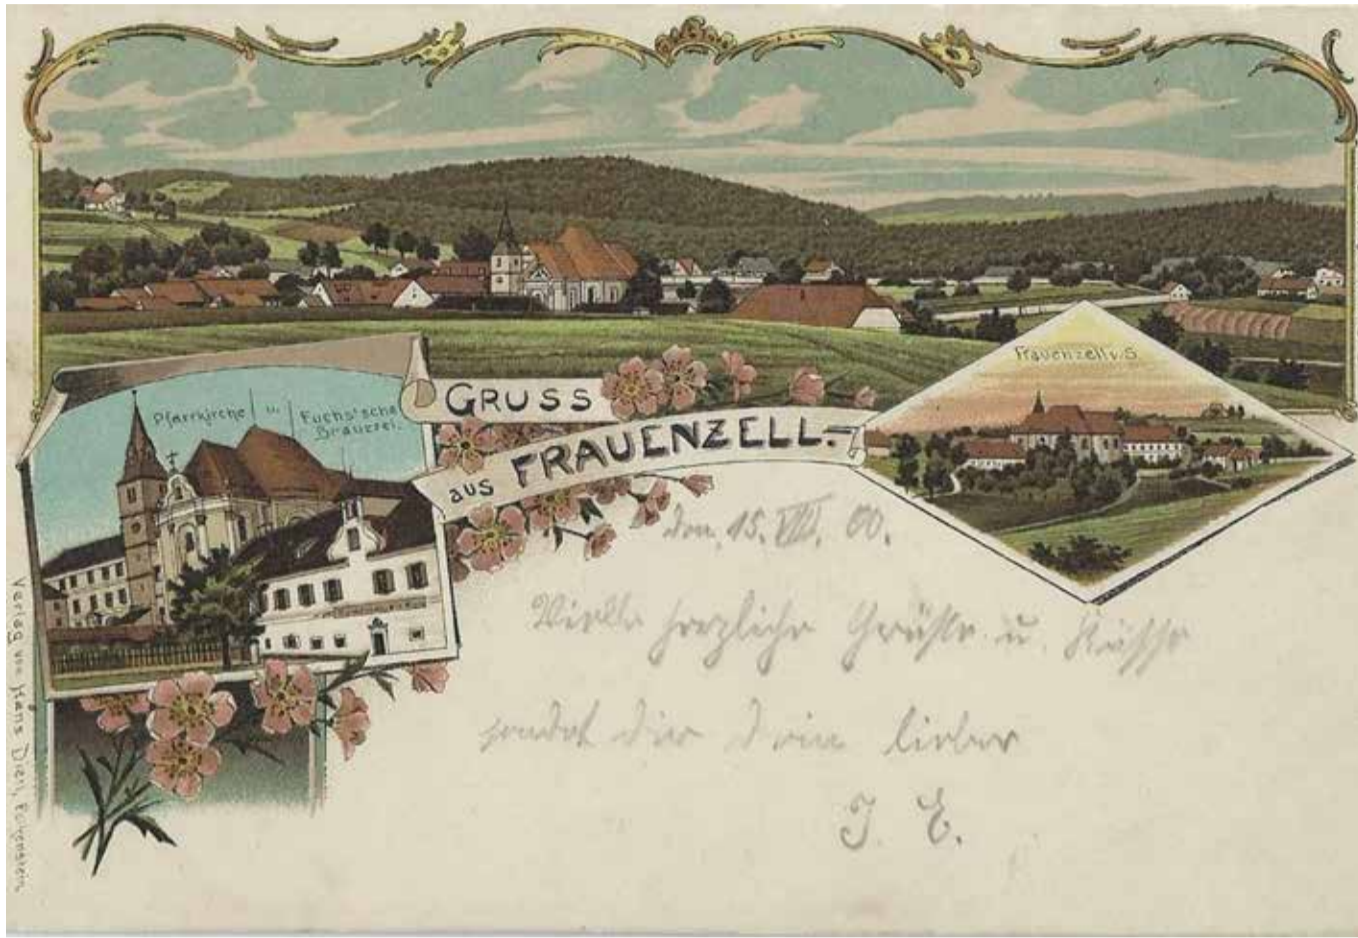 Pfarrkirche u. Fuchs'sche
Brauerei.
GRUSS
aus FRAUENZELL.
Frauenzell v. S.
den 15. VIII. 00.
Viele herzliche Grüße u. Küsse
sendet dir dein lieber
J. E.
Verlag von Hans Dierl, Falkenstein